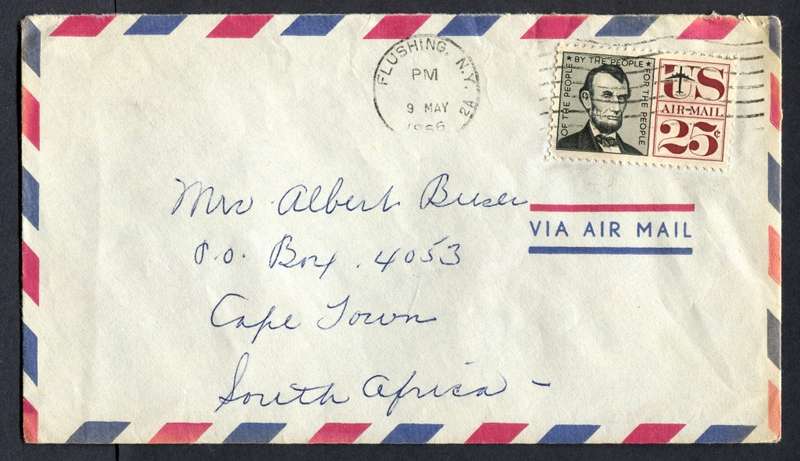 FLUSHING, N.Y.
PM
9 MAY
1966
2A
OF THE PEOPLE ★ BY THE PEOPLE ★ FOR THE PEOPLE
US
AIR-MAIL
25¢
Mrs Albert
VIA AIR MAIL
P.O. Box. 4053
Cape Town
South Africa -